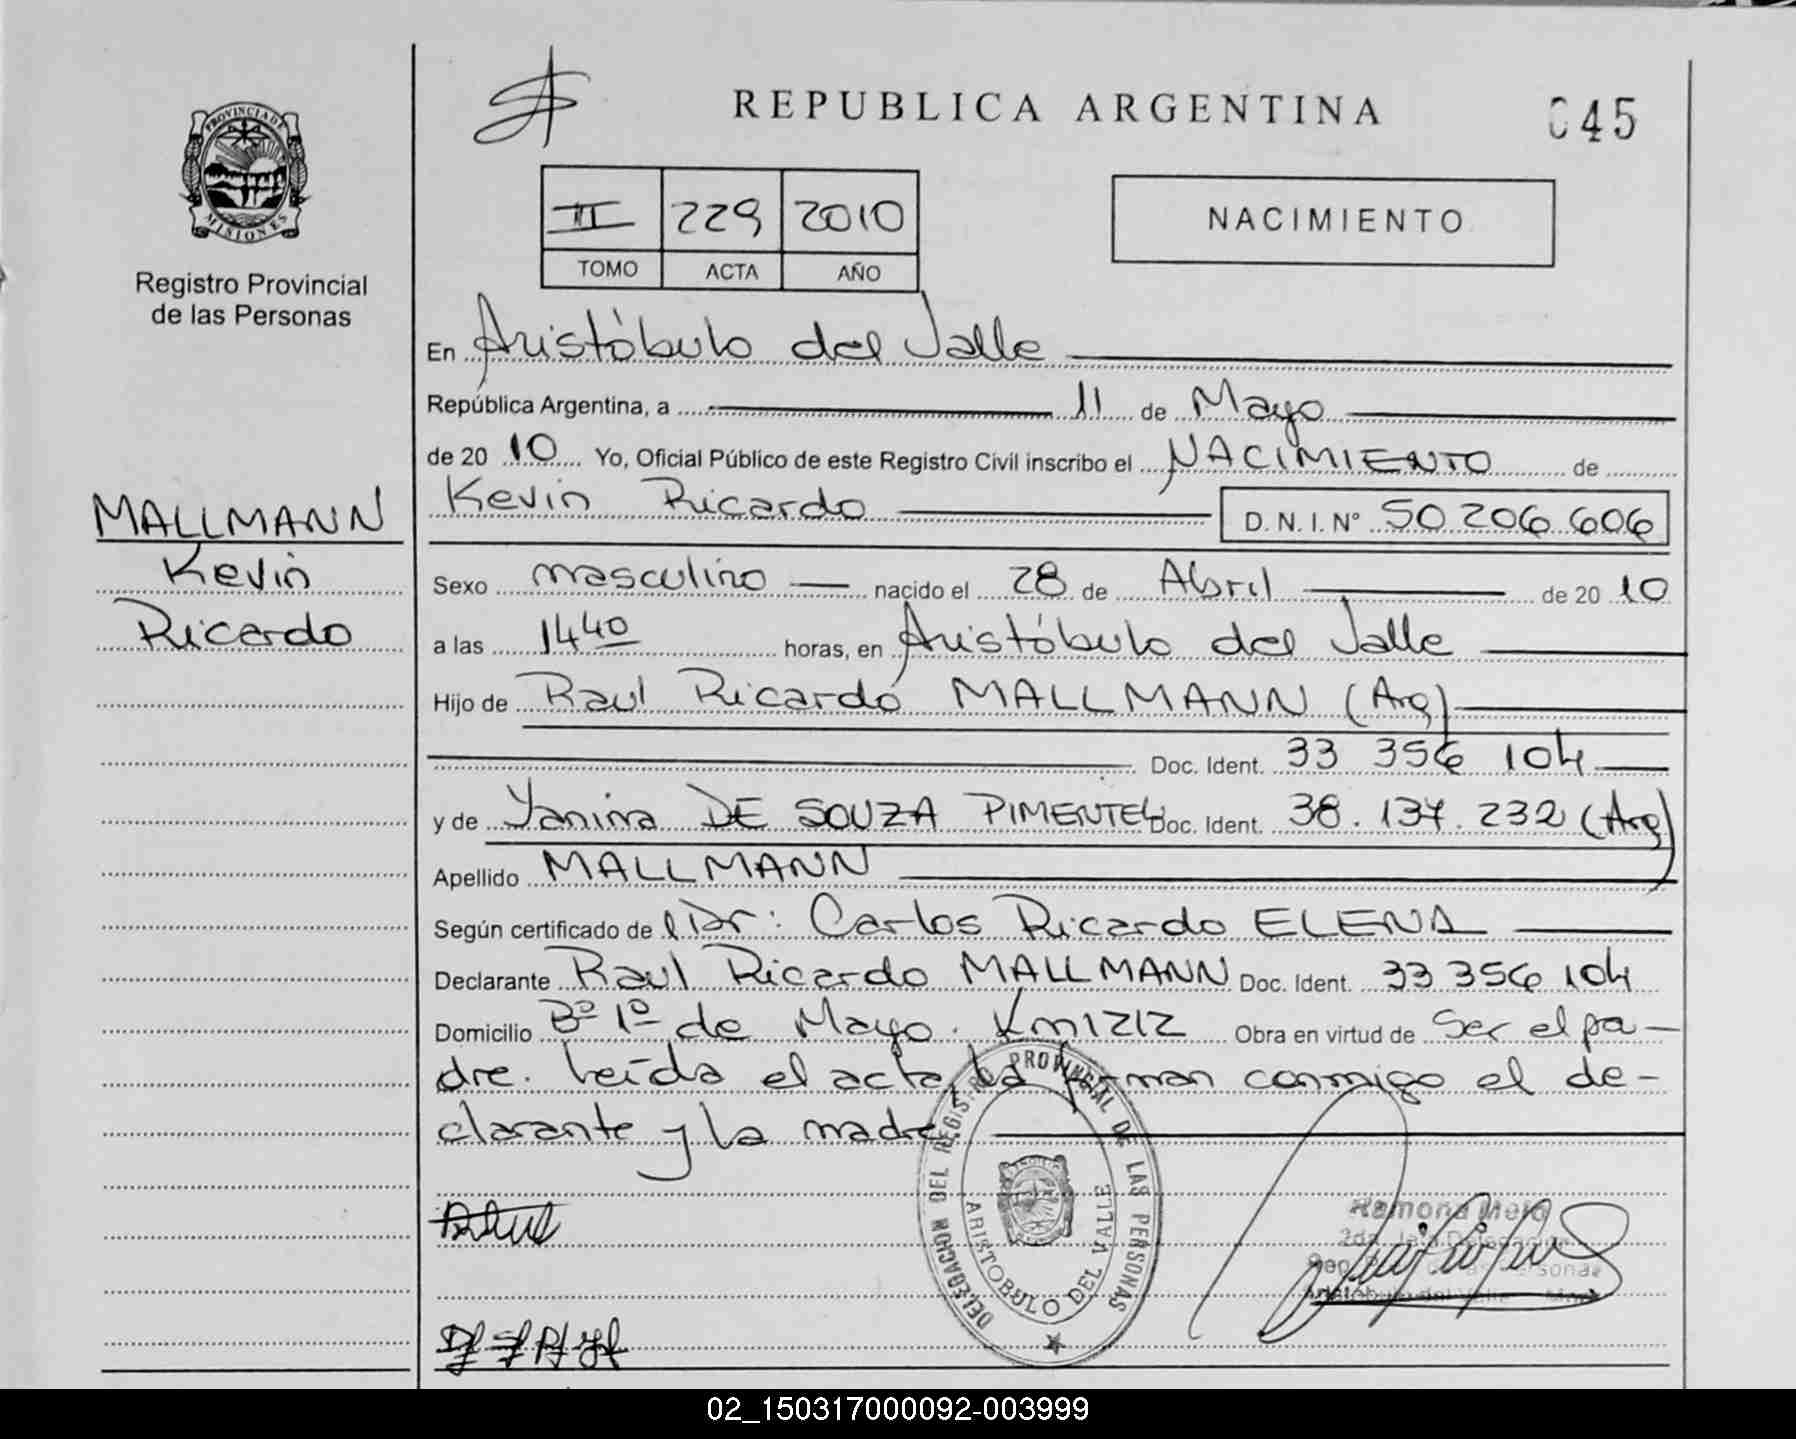 REPUBLICA ARGENTINA
045
PROVINCIA DE MISIONES
Registro Provincial
de las Personas
II 229 2010
TOMO ACTA AÑO
NACIMIENTO
En Aristóbulo del Valle
República Argentina, a 11 de Mayo
de 2010 Yo, Oficial Público de este Registro Civil inscribo el NACIMIENTO de
Kevin Ricardo D.N.I. Nº 50 206 606
MALLMANN
Kevin
Ricardo
Sexo masculino nacido el 28 de Abril de 2010
a las 14 40 horas, en Aristóbulo del Valle
Hijo de Raul Ricardo MALLMANN (Arg)
Doc. Ident. 33 356 104
y de Yanina DE SOUZA PIMENTEL Doc. Ident. 38.137.232 (Arg)
Apellido MALLMANN
Según certificado de l Dr: Carlos Ricardo ELENA
Declarante Raul Ricardo MALLMANN Doc. Ident. 33 356 104
Domicilio Bº 1º de Mayo. Km 1212 Obra en virtud de Ser el pa-
dre. Leída el acta, la firman conmigo el de-
clarante y la madre
DELEGACION DEL REGISTRO PROVINCIAL DE LAS PERSONAS
ARISTOBULO DEL VALLE
Ramona Melo
02_150317000092-003999